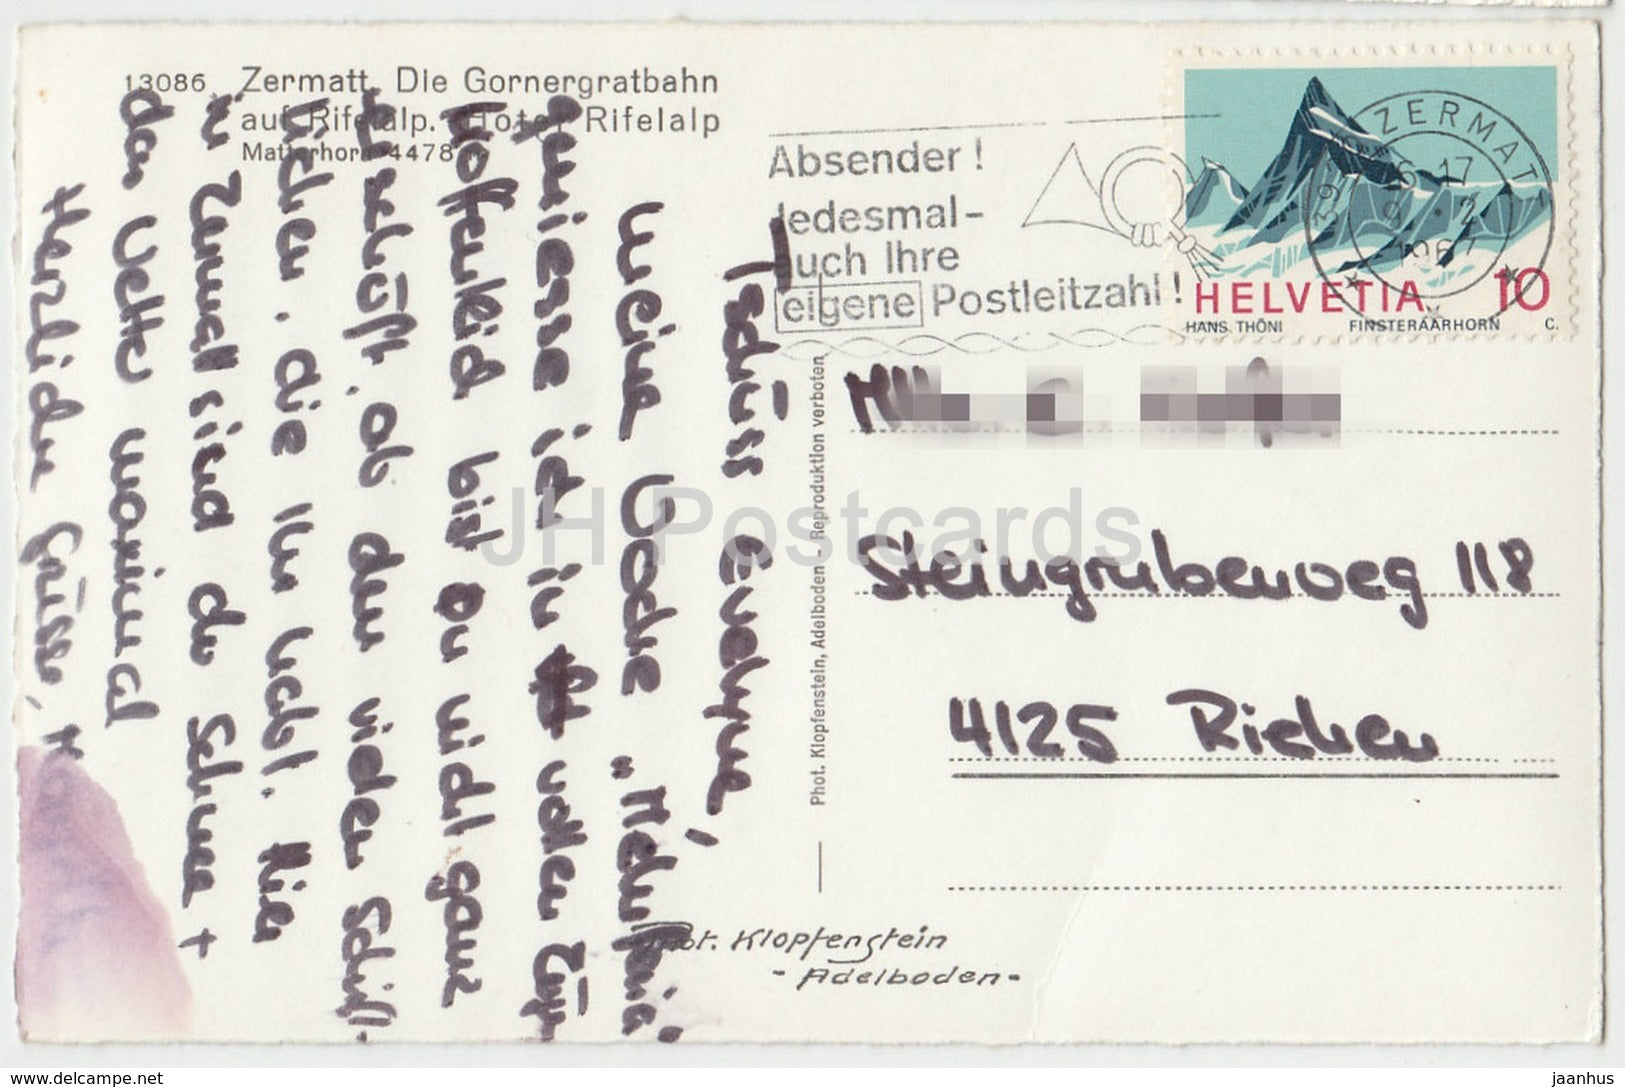 13086. Zermatt. Die Gornergratbahn
auf Rifelalp. Hotel Rifelalp
Matterhorn 4478
Absender!
Jedesmal-
auch Ihre
eigene Postleitzahl!
ZERMATT
3920
16-17
9. 2
1967
HELVETIA 10
HANS THÖNI FINSTERAARHORN C.
Steingrubenweg 118
4125 Riehen
Phot. Klopfenstein, Adelboden - Reproduktion verboten
Phot. Klopfenstein
- Adelboden -
Tschüss Evelyne,
Meine Woche
geniesse ich in vollen Zü-
bist Du nicht ganz
, ob den vielen Schiff-
lichen, die Ihr habt. Hier
in Zermatt sind der Schnee +
das Wetter maximal
Herzliche Grüsse,
JH Postcards
www.delcampe.net
jaanhus